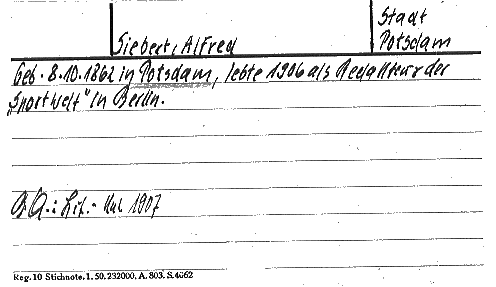 Siebert, Alfred
Stadt
Potsdam
Geb. 8.10.1862 in Potsdam, lebte 1906 als Redakteur der
„Sportwelt" in Berlin.
G.Q.: Lit.- Kal. 1907
Reg. 10 Stichnote. 1. 50. 232000. A. 803. S. 4662